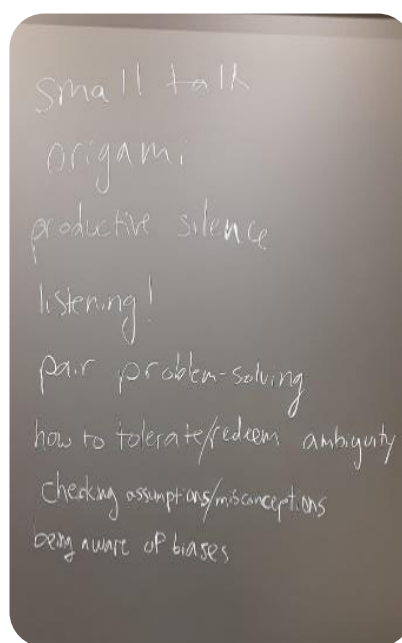 small talk
origami
productive silence
listening!
pair problem-solving
how to tolerate/redeem ambiguity
checking assumptions/misconceptions
being aware of biases